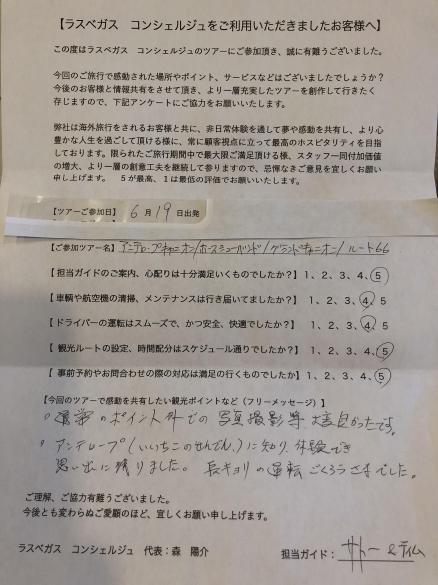 【ラスベガス　コンシェルジュをご利用いただきましたお客様へ】
この度はラスベガス　コンシェルジュのツアーにご参加頂き、誠に有難うございました。
今回のご旅行で感動された場所やポイント、サービスなどはございましたでしょうか？
今後のお客様と情報共有をさせて頂き、より一層充実したツアーを創作して行きたく
存じますので、下記アンケートにご協力をお願いいたします。
弊社は海外旅行をされるお客様と共に、非日常体験を通して夢や感動を共有し、より心
豊かな人生を過ごして頂ける様に、常に顧客視点に立って最高のホスピタリティを目指
しております。限られたご旅行期間中で最大限ご満足頂ける様、スタッフ一同付加価値
の増大、より一層の創意工夫を継続して参りますので、忌憚なきご意見を宜しくお願い
申し上げます。　５が最高、１は最低の評価でお願いいたします。
【ツアーご参加日】　6月19日出発
【ご参加ツアー名】アンテロープキャニオン/ホースシューベンド/グランドキャニオン/ルート66
【担当ガイドのご案内、心配りは十分満足いくものでしたか？】1、2、3、4、5
【車輌や航空機の清掃、メンテナンスは行き届いてましたか？】1、2、3、4、5
【ドライバーの運転はスムーズで、かつ安全、快適でしたか？】1、2、3、4、5
【観光ルートの設定、時間配分はスケジュール通りでしたか？】1、2、3、4、5
【事前予約やお問合わせの際の対応は満足の行くものでしたか】1、2、3、4、5
【今回のツアーで感動を共有したい観光ポイントなど（フリーメッセージ）】
のポイント外での写真撮影等大変良かったです。
アンテロープ(いいちこのせんでん)に知り、体験でき
思い出に残りました。長キョリの運転ごくろうさまでした。
ご理解、ご協力有難うございました。
今後とも変わらぬご愛顧のほど、宜しくお願い申し上げます。
ラスベガス　コンシェルジュ　代表：森　陽介
担当ガイド：サトー＆ティム